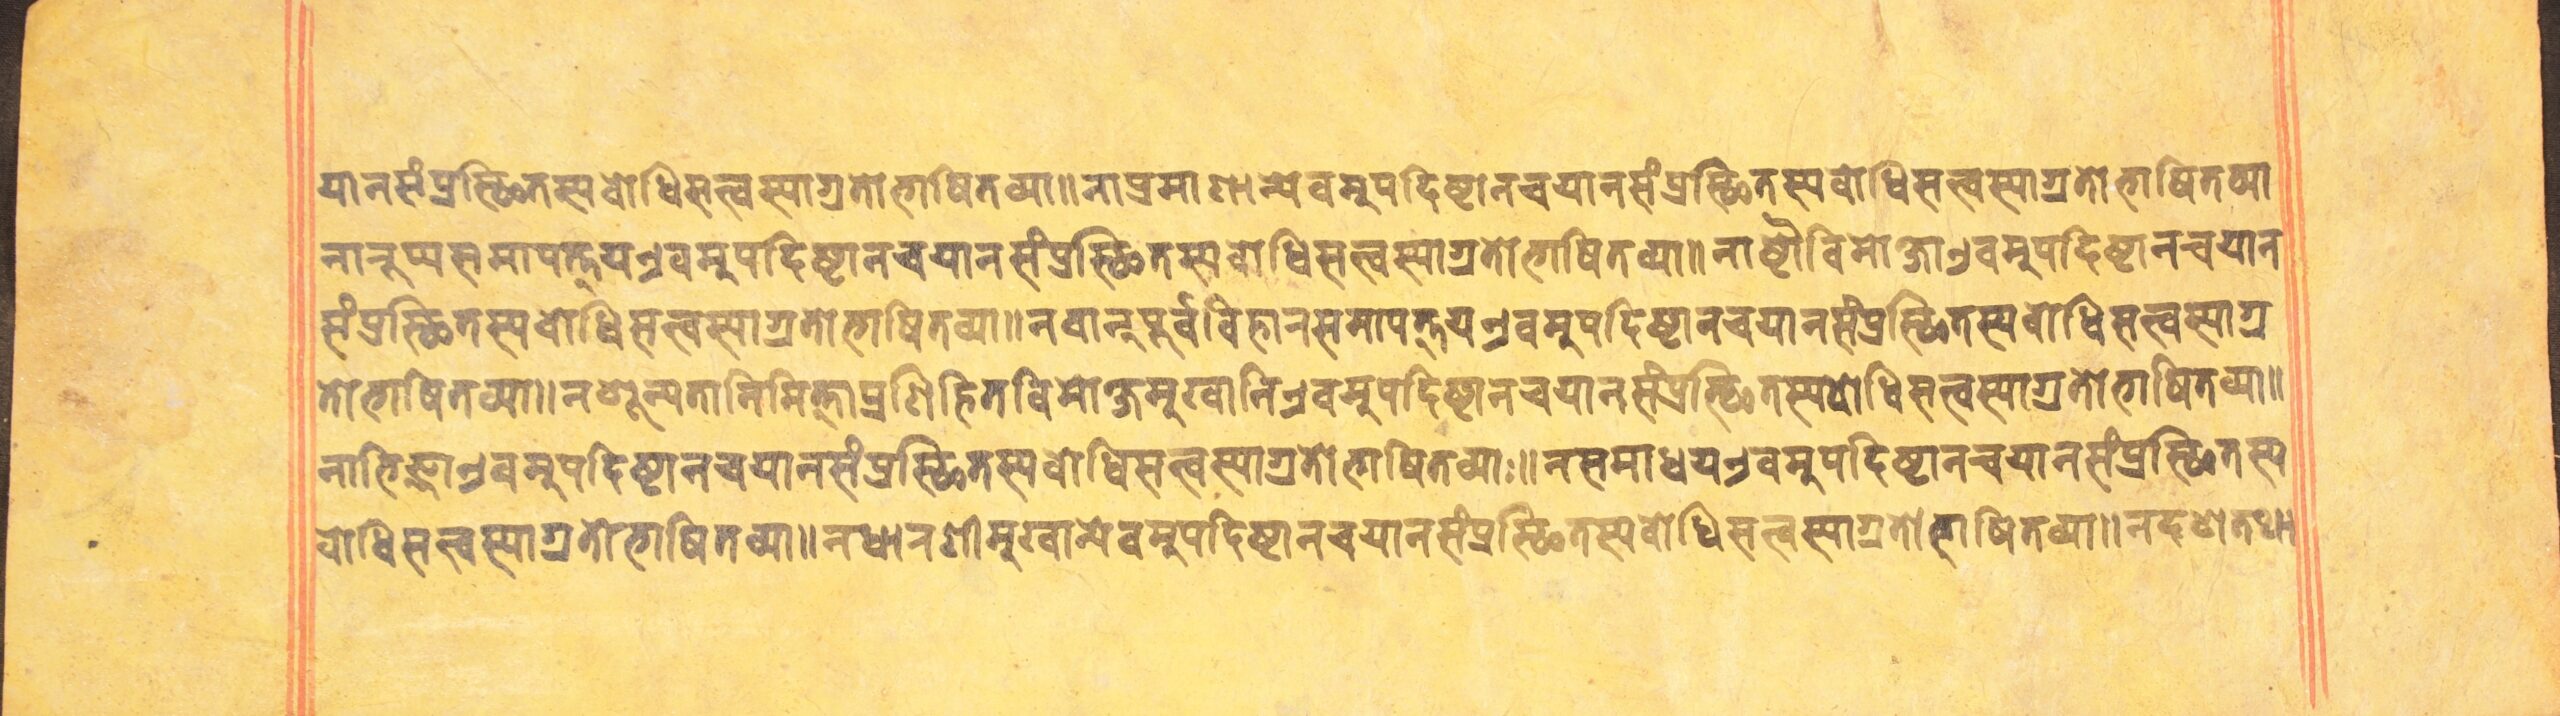 यानसंप्रस्थितस्यबोधिसत्त्वस्याग्रतोभाषितव्या॥नाप्रमाणान्येवमुपदिष्टानचयानसंप्रस्थितस्यबोधिसत्त्वस्याग्रतोभाषितव्या
नानुप्यसमापत्तयएवमुपदिष्टानचयानसंप्रस्थितस्यबोधिसत्त्वस्याग्रतोभाषितव्या॥नाष्टौविमोक्षाएवमुपदिष्टानचयान
संप्रस्थितस्यबोधिसत्त्वस्याग्रतोभाषितव्या॥नवानुपूर्वविहानसमापत्तयएवमुपदिष्टानचयानसंप्रस्थितस्यबोधिसत्त्वस्याग्र
तोभाषितव्या॥नशून्यतानिमित्ताप्रणिहितविमोक्षमुखानिएवमुपदिष्टानचयानसंप्रस्थितस्यबोधिसत्त्वस्याग्रतोभाषितव्या॥
नाभिज्ञाएवमुपदिष्टानचयानसंप्रस्थितस्यबोधिसत्त्वस्याग्रतोभाषितव्याः॥नसमाधयएवमुपदिष्टानचयानसंप्रस्थितस्य
बोधिसत्त्वस्याग्रतोभाषितव्या॥नधानणीमुखान्येवमुपदिष्टानचयानसंप्रस्थितस्यबोधिसत्त्वस्याग्रतोभाषितव्या॥नदशतथा